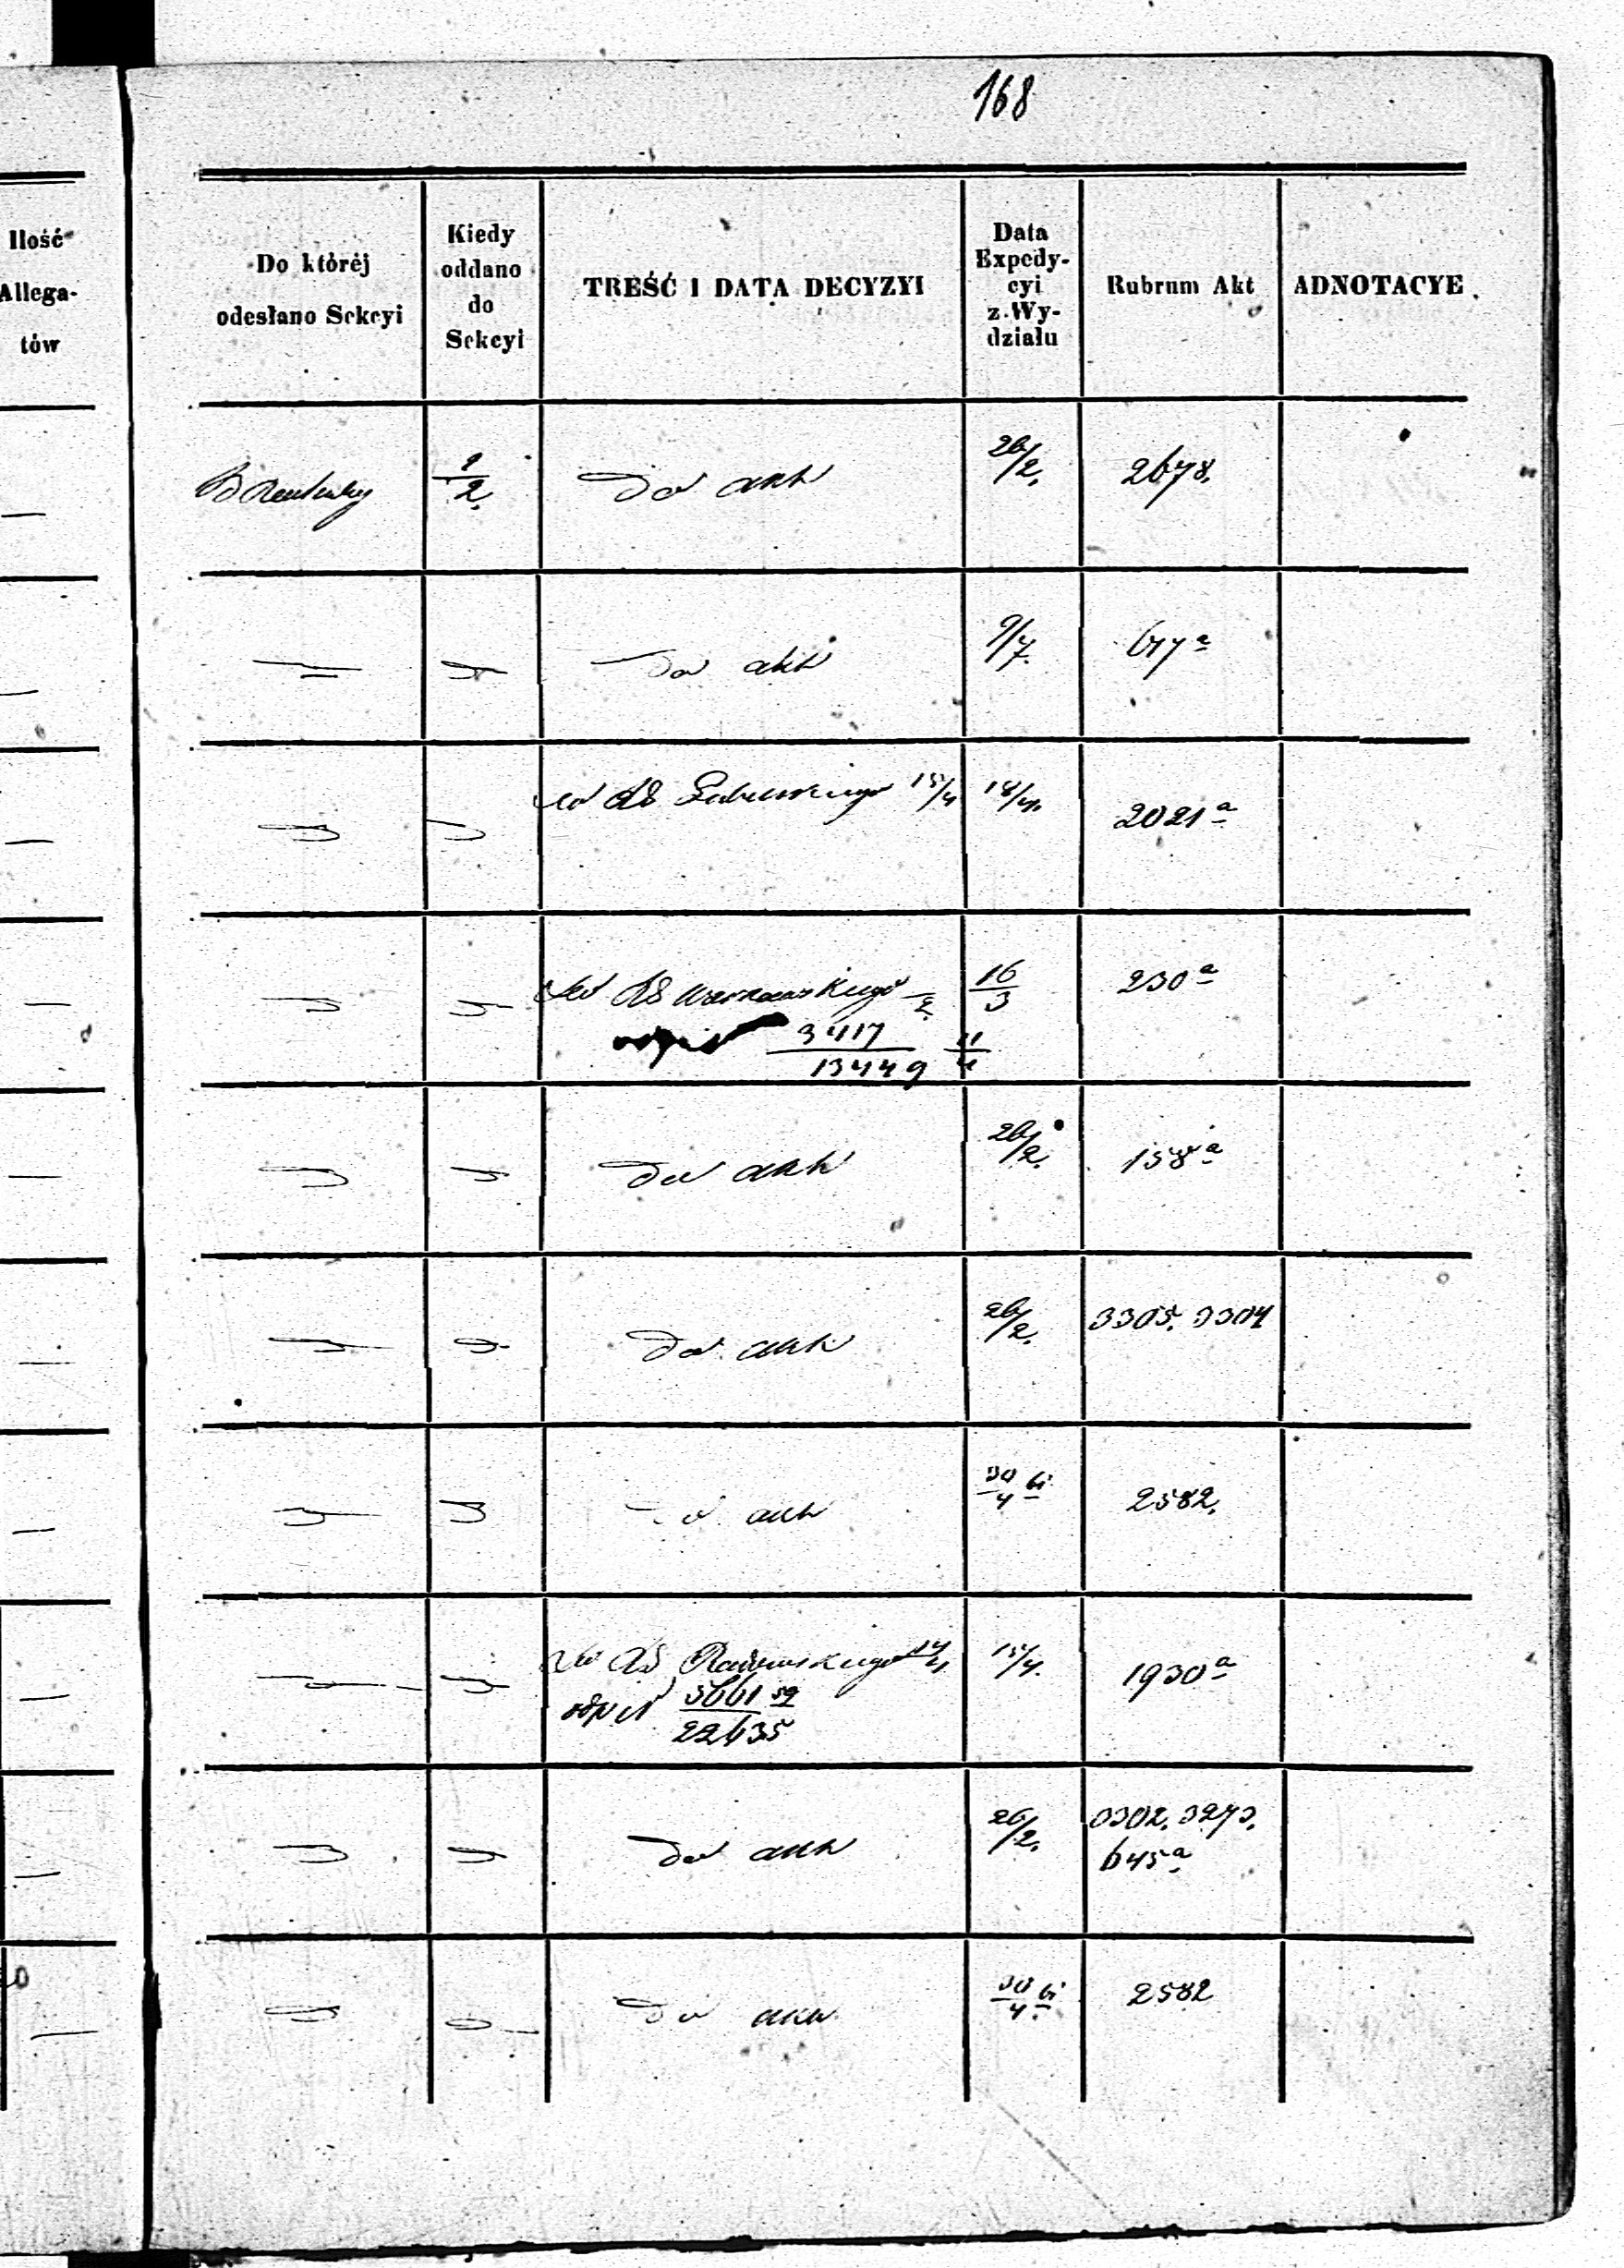 168
Ilość
Allega-
tów
Do któréj
odesłano Sekcyi
Kiedy
oddano
do
Sekcyi
TREŚĆ I DATA DECYZYI
Data
Expedy-
cyi
z Wy-
działu
Rubrum Akt
ADNOTACYE
2/2. Do akt 26/2. 2678.
Do akt 9/7. 677a
15/4 18/4. 2021a
Warszawskiego 16/3 230a
odpis 3417/13449 11/4
Do akt 26/2. 158a
Do akt 26/2. 3305. 3304
Do akt 30/4 2582.
Radomskiego 14/4 15/4. 1930a
odpis 3661/22635
Do akt 26/2. 3302. 3273.
645a
Do akt 30/4 2582